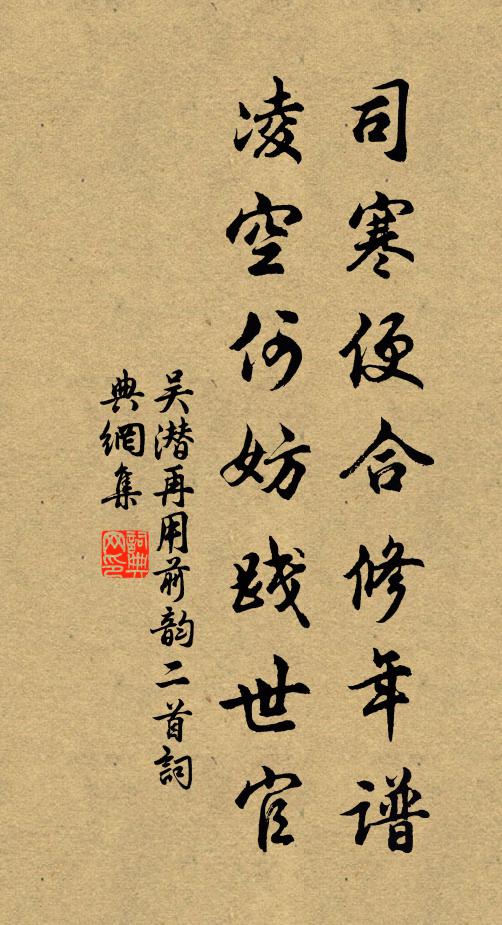 司寒便合修年谱
凌空何妨践世官
吴潜再用前韵二首詞
典網集
詞典网印